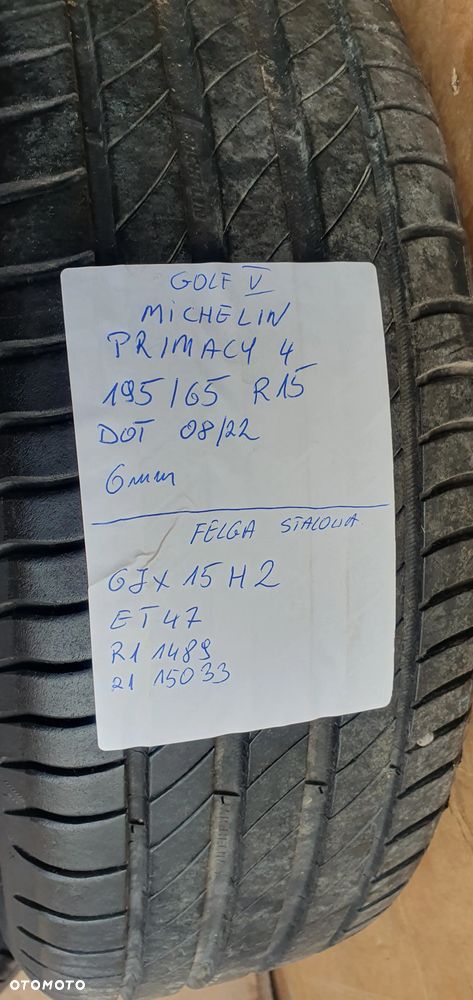 GOLF V
MICHELIN
PRIMACY 4
195/65 R15
DOT 08/22
6mm
FELGA STALOWA
6Jx15H2
ET47
R1 1489
21 15033
OTOMOTO